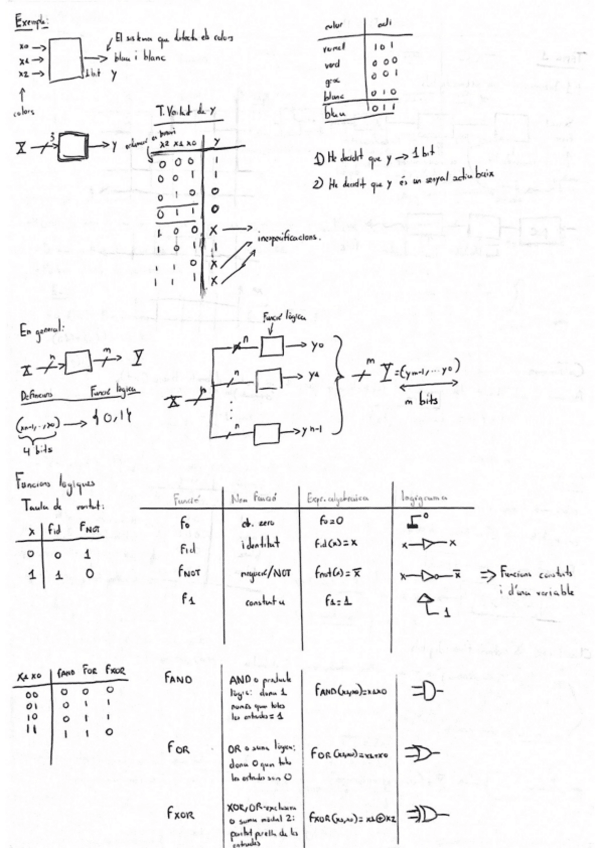 Exemple:
x0
x1
x2
colors
El sistema que detecta els colors
blau i blanc
1 bit y
color codi
vermell 101
verd 000
groc 001
blanc 010
blau 011
1) He decidit que y → 1 bit
2) He decidit que y és un senyal actiu baix
X 3 y
T. Veritat de y
x2 x1 x0 y
0 0 0 1
0 0 1 1
0 1 0 0
0 1 1 0
1 0 0 X
1 0 1 1
1 1 0 X
1 1 1 X
inespecificacions.
En general:
X n m Y
Definicions Funció lògica
(xn-1,..,x0) → {0,1}
4 bits
Funció lògica
X n
n y0
n y1
n yn-1
m Y=(ym-1,...y0)
m bits
Funcions lògiques
Taula de veritat:
x fid fNOT
0 0 1
1 1 0
Funció Nom funció Expr. algebraica Logigrama
f0 ct. zero f0=0 0
fid identitat fid(x)=x x x
fNOT negació/NOT fnot(x)=x̅ x x̅
f1 constant u f1=1 1
⇒ Funcions constants
i d'una variable
x1 x0 fAND fOR fXOR
00 0 0 0
01 0 1 1
10 0 1 1
11 1 1 0
fAND
AND o producte
lògic: dona 1
només quan totes
les entrades=1
fAND(x1,x0)=x1x0
fOR
OR o suma lògica:
dona 0 quan totes
les entrades són 0
fOR(x1,x0)=x1+x0
fXOR
XOR, OR-exclusiva
o suma mòdul 2:
paritat parella de les
entrades
fXOR(x1,x0)=x1⊕x2